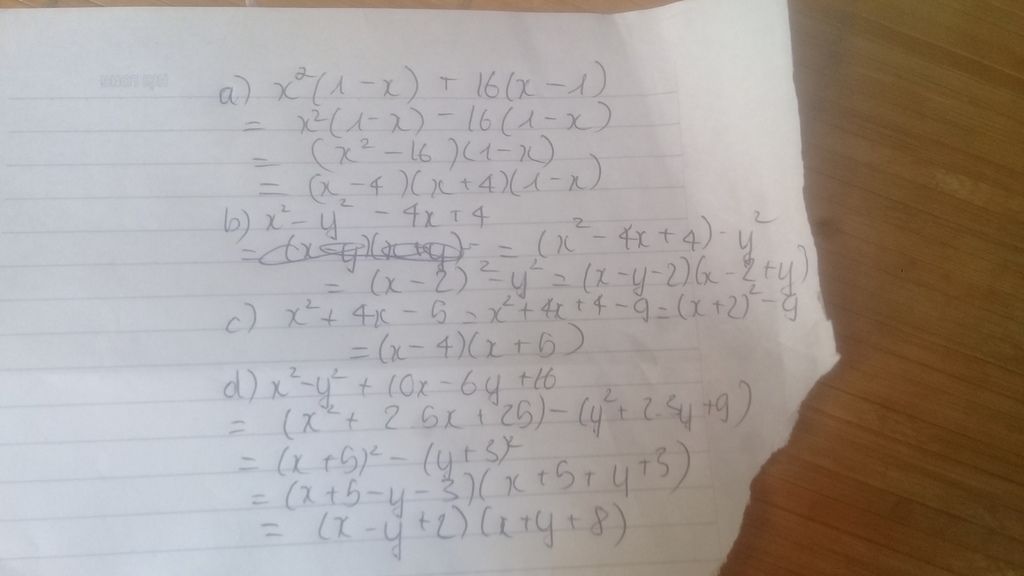 a) x²(1-x) + 16(x-1)
= x²(1-x) - 16(1-x)
= (x²-16)(1-x)
= (x-4)(x+4)(1-x)
b) x²-y² - 4x+4
= (x²-4x+4)-y²
= (x-2)²-y² = (x-y-2)(x-2+y)
c) x²+4x-5 = x²+4x+4-9 = (x+2)²-9
= (x-4)(x+5)
d) x²-y²+10x-6y+16
= (x²+2.5x+25)-(y²+2.3y+9)
= (x+5)²-(y+3)²
= (x+5-y-3)(x+5+y+3)
= (x-y+2)(x+y+8)